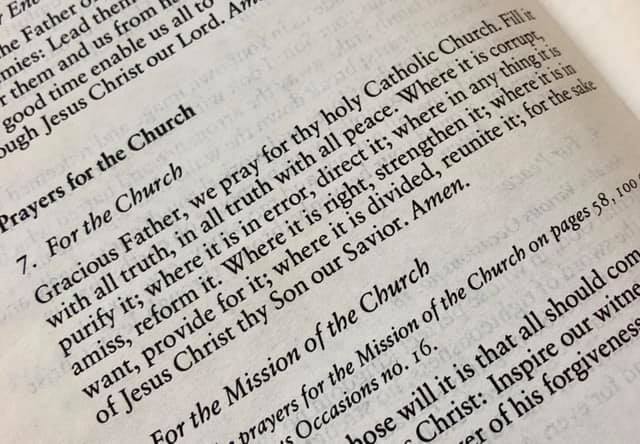 r Ene
he Father o
mies: Lead them
r them and us from h
good time enable us all to
ough Jesus Christ our Lord. Am
Prayers for the Church
7. For the Church
Gracious Father, we pray for thy holy Catholic Church. Fill it
with all truth, in all truth with all peace. Where it is corrupt,
purify it; where it is in error, direct it; where in any thing it is
amiss, reform it. Where it is right, strengthen it; where it is in
want, provide for it; where it is divided, reunite it; for the sake
of Jesus Christ thy Son our Savior. Amen.
For the Mission of the Church
prayers for the Mission of the Church on pages 58, 100
s Occasions no. 16.
hose will it is that all should com
Christ: Inspire our witne
er of his forgiveness